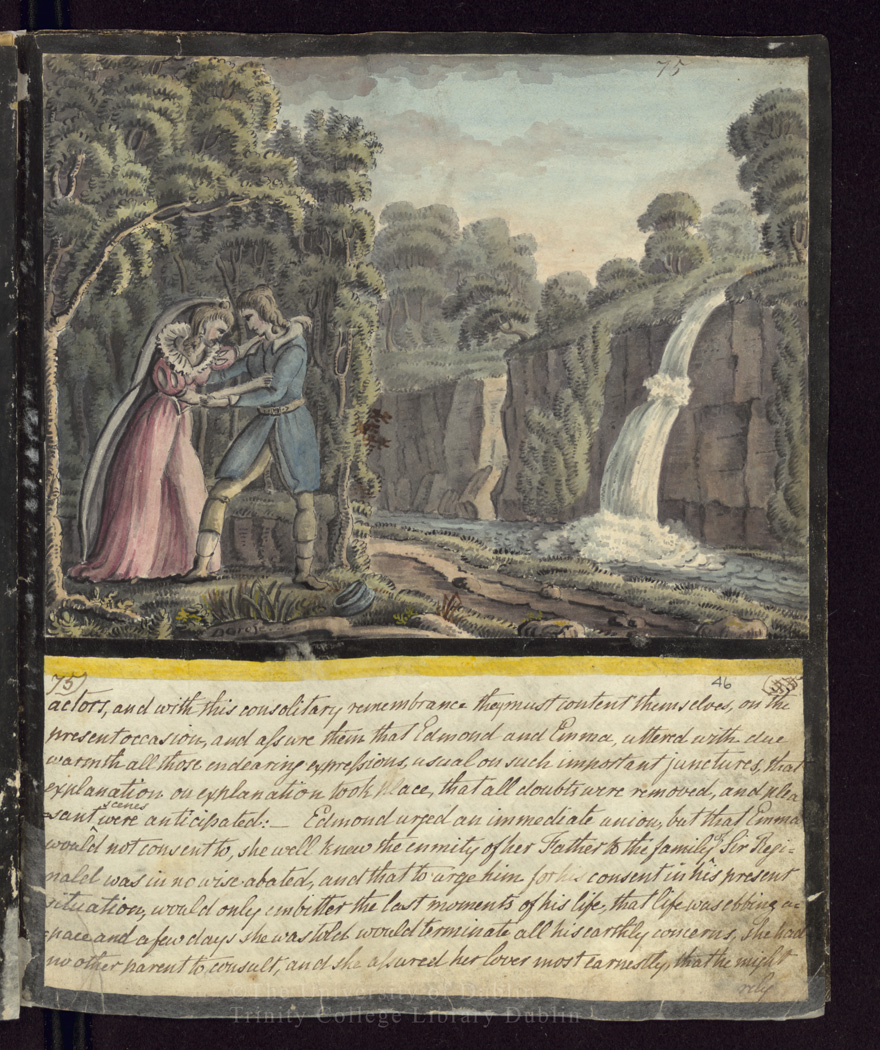 75
75)
46
actors, and with this consolitary remembrance they must content themselves, on the
present occasion, and assure them that Edmond and Emma, uttered with due
warmth all those endearing expressions, usual on such important junctures, that
explanation on explanation took place, that all doubts were removed, and plea
scenes
sant were anticipated:— Edmond urged an immediate union, but that Emma
would not consent to, she well knew the enmity of her Father to the family of Sir Regi-
nald was in no wise abated, and that to urge him for his consent in his present
situation, would only embitter the last moments of his life, that life was ebbing a
pace and a few days she was told would terminate all his earthly concerns, she had
no other parent to consult, and she assured her lover most earnestly, that he might
rely
Trinity College Library Dublin